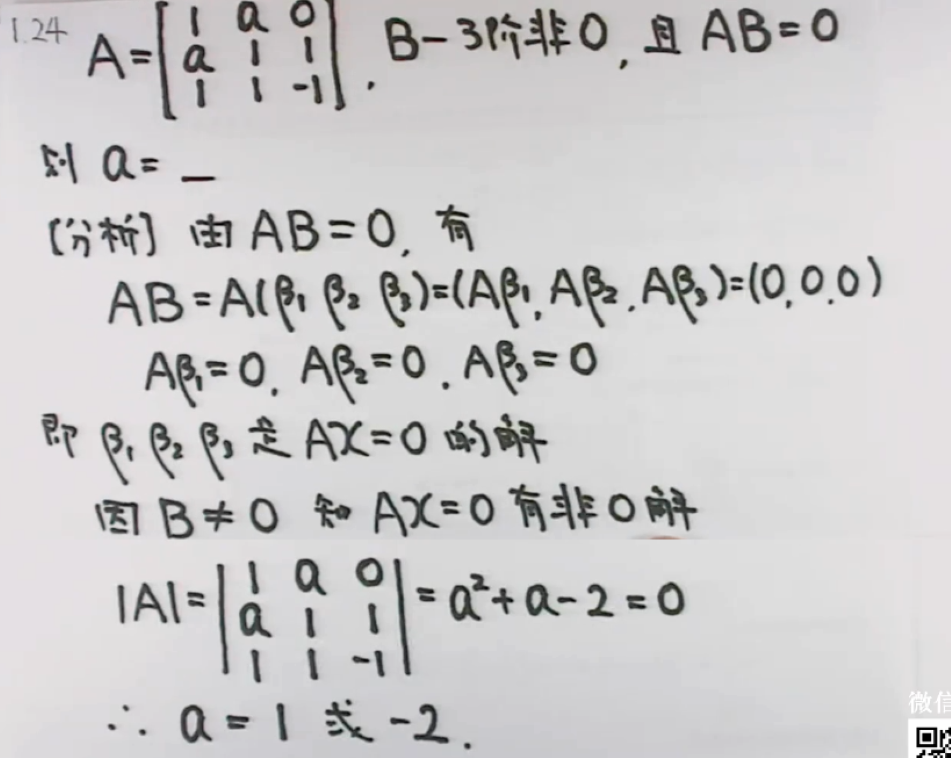 1.24 A=[1 a 0; a 1 1; 1 1 -1], B-3阶非0, 且 AB=0
则 a= _
[分析] 由 AB=0, 有
AB=A(β₁ β₂ β₃)=(Aβ₁, Aβ₂, Aβ₃)=(0,0,0)
Aβ₁=0, Aβ₂=0, Aβ₃=0
即 β₁ β₂ β₃ 是 AX=0 的解
因 B≠0 知 AX=0 有非0解
|A|=|1 a 0; a 1 1; 1 1 -1|=a²+a-2=0
∴ a=1 或 -2.
微信